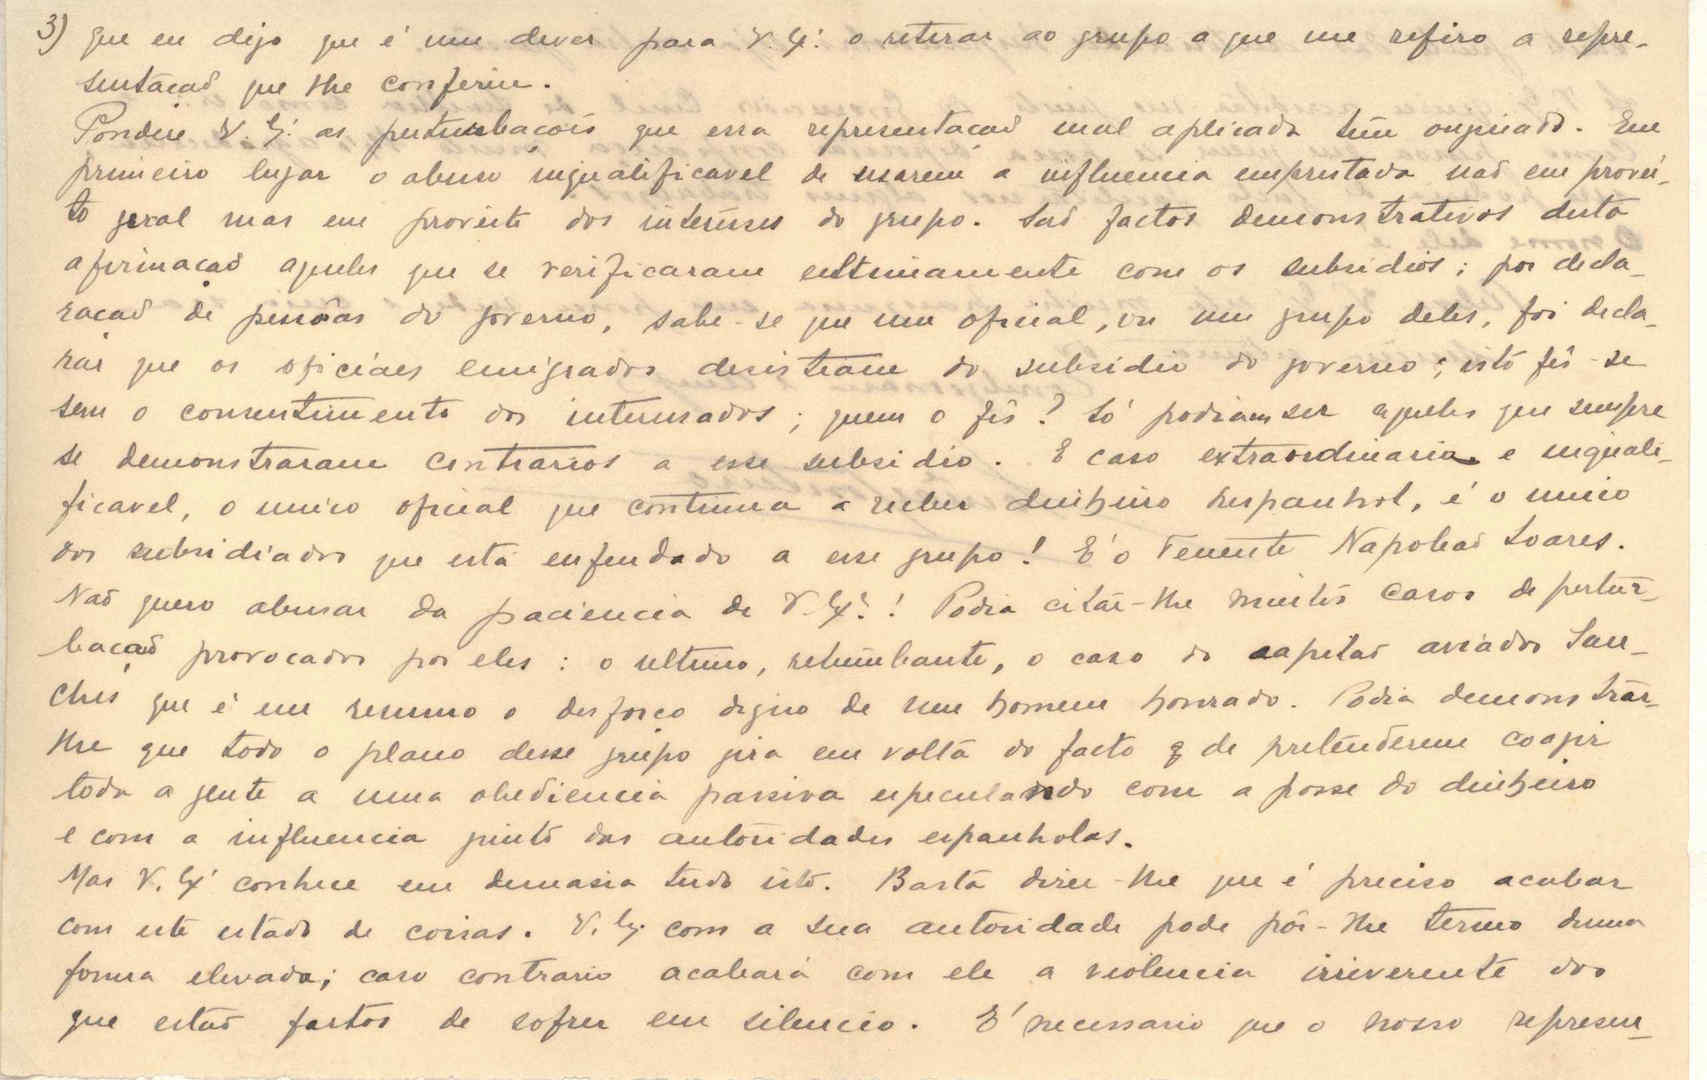 3) que eu digo que é um dever para V. Exª. o retirar ao grupo a que me refiro a repre-
sentação que lhe conferiu.
Pondere V. Exª. as perturbações que essa representação mal aplicada têm originado. Em
primeiro lugar o abuso inqualificavel de usarem a influencia emprestada não em provei-
to geral mas em proveito dos interesses do grupo. São factos demonstrativos desta
afirmação aqueles que se verificaram ultimamente com os subsidios; por decla-
ração de pessôas do governo, sabe-se que um oficial, ou um grupo deles, foi decla-
rar que os oficiáes emigrados desistiam do subsidio do governo; isto fês-se
sem o consentimento dos interessados; quem o fês? Só podiam ser aqueles que sempre
se demonstraram contrarios a esse subsidio. E caso extraordinario e inquali-
ficavel, o unico oficial que continua a receber dinheiro hespanhol, é o unico
dos subsidiados que está enfeudado a esse grupo! E' o Tenente Napoleão Soares.
Não quero abusar da paciencia de V. Exª.! Podia citar-lhe muitos casos de pertur-
bação provocados por eles: o ultimo, retumbante, o caso do capitão aviador San-
ches que é em resumo o desforço digno de um homem honrado. Podia demonstrar-
lhe que todo o plano desse grupo gira em volta do facto q de pretenderem coagir
toda a gente a uma obediencia passiva especulando com a posse do dinheiro
e com a influencia junto das autoridades espanholas.
Mas V. Exª conhece em demasia tudo isto. Basta dizer-lhe que é preciso acabar
com este estado de coisas. V. Ex. com a sua autoridade pode pôr-lhe termo duma
forma elevada; caso contrario acabará com ele a violencia irreverente dos
que estão fartos de sofrer em silencio. E' necessario que o nosso represen-